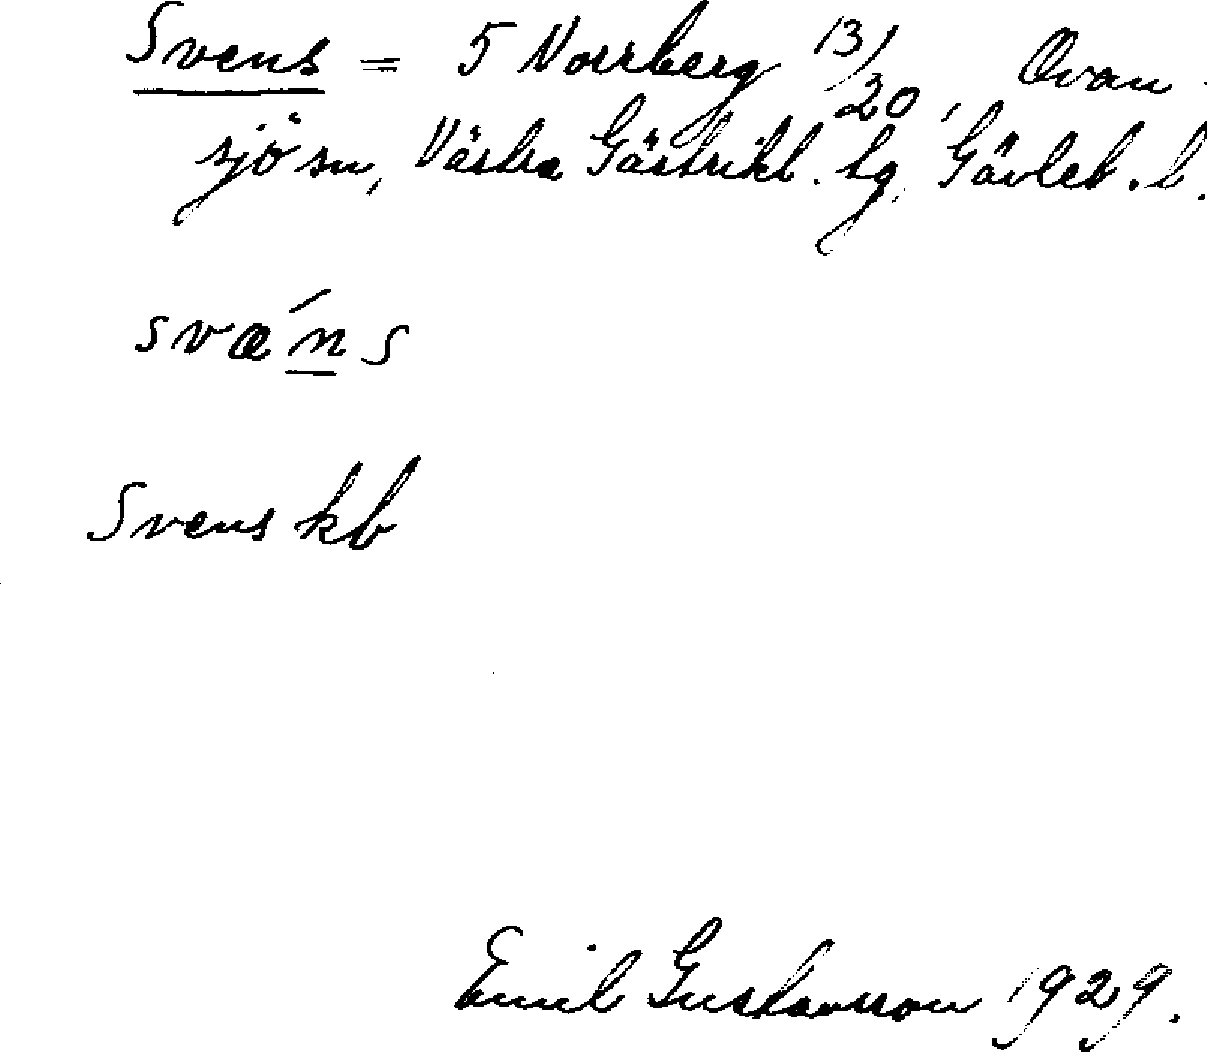 Svens = 5 Norrberg 13/20, Ovan-
sjö sn, Västra Gästrikl. tg. Gävleb. l.
svæ´ns
Svens kb
Emil Gustavsson 1929.